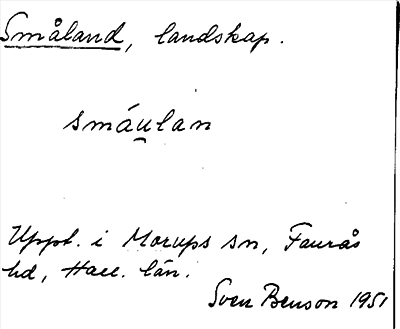 Småland, landskap.
smáu̯lan
Uppt. i Morups sn, Faurås
hd, Hall. län.
Sven Benson 1951